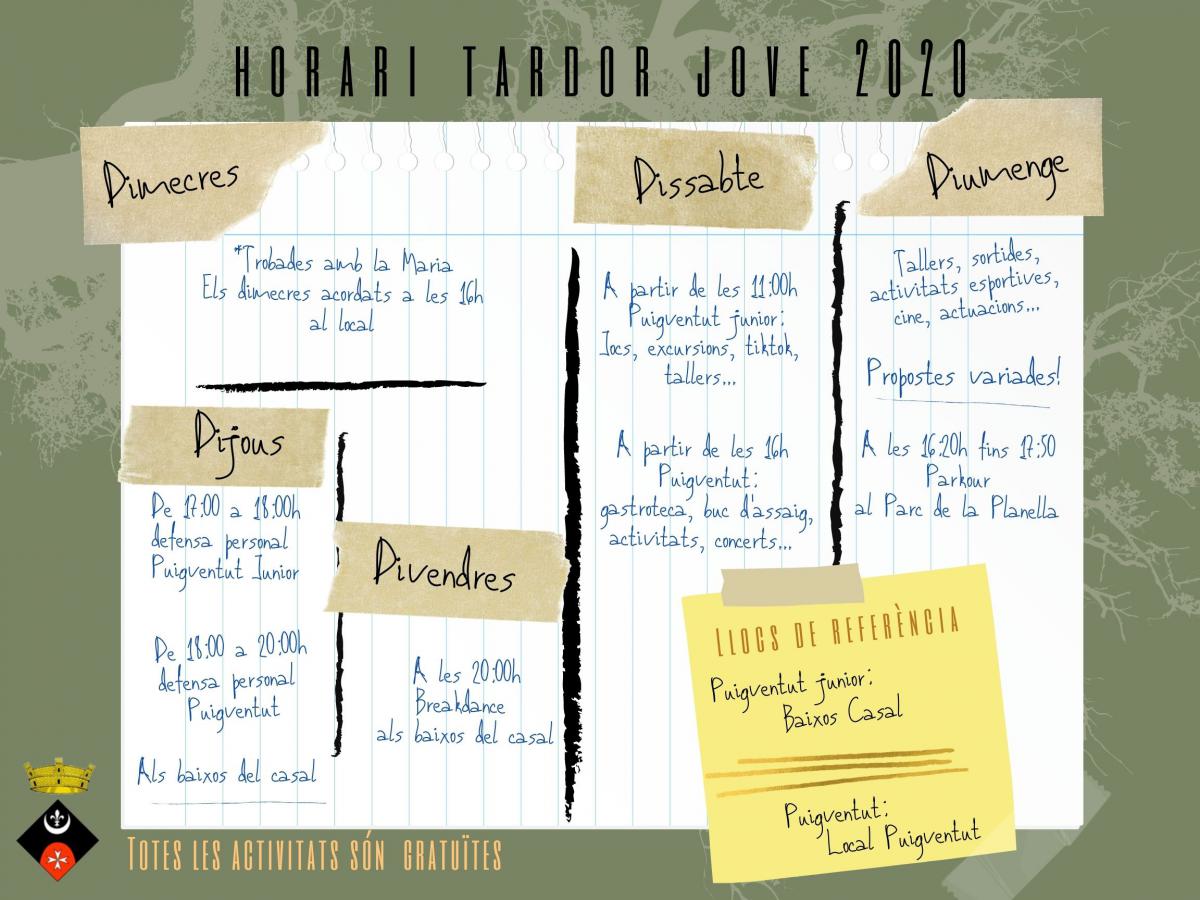 HORARI TARDOR JOVE 2020
Dimecres
*Trobades amb la Maria
Els dimecres acordats a les 16h
al local
Dijous
De 17:00 a 18:00h
defensa personal
Puigventut Junior
De 18:00 a 20:00h
defensa personal
Puigventut
Als baixos del casal
Divendres
A les 20:00h
Breakdance
als baixos del casal
Dissabte
A partir de les 11:00h
Puigventut junior:
Jocs, excursions, tiktok,
tallers...
A partir de les 16h
Puigventut:
gastroteca, buc d'assaig,
activitats, concerts...
Diumenge
Tallers, sortides,
activitats esportives,
cine, actuacions...
Propostes variades!
A les 16:20h fins 17:50
Parkour
al Parc de la Planella
LLOCS DE REFERÈNCIA
Puigventut junior:
Baixos Casal
Puigventut:
Local Puigventut
TOTES LES ACTIVITATS SÓN GRATUÏTES